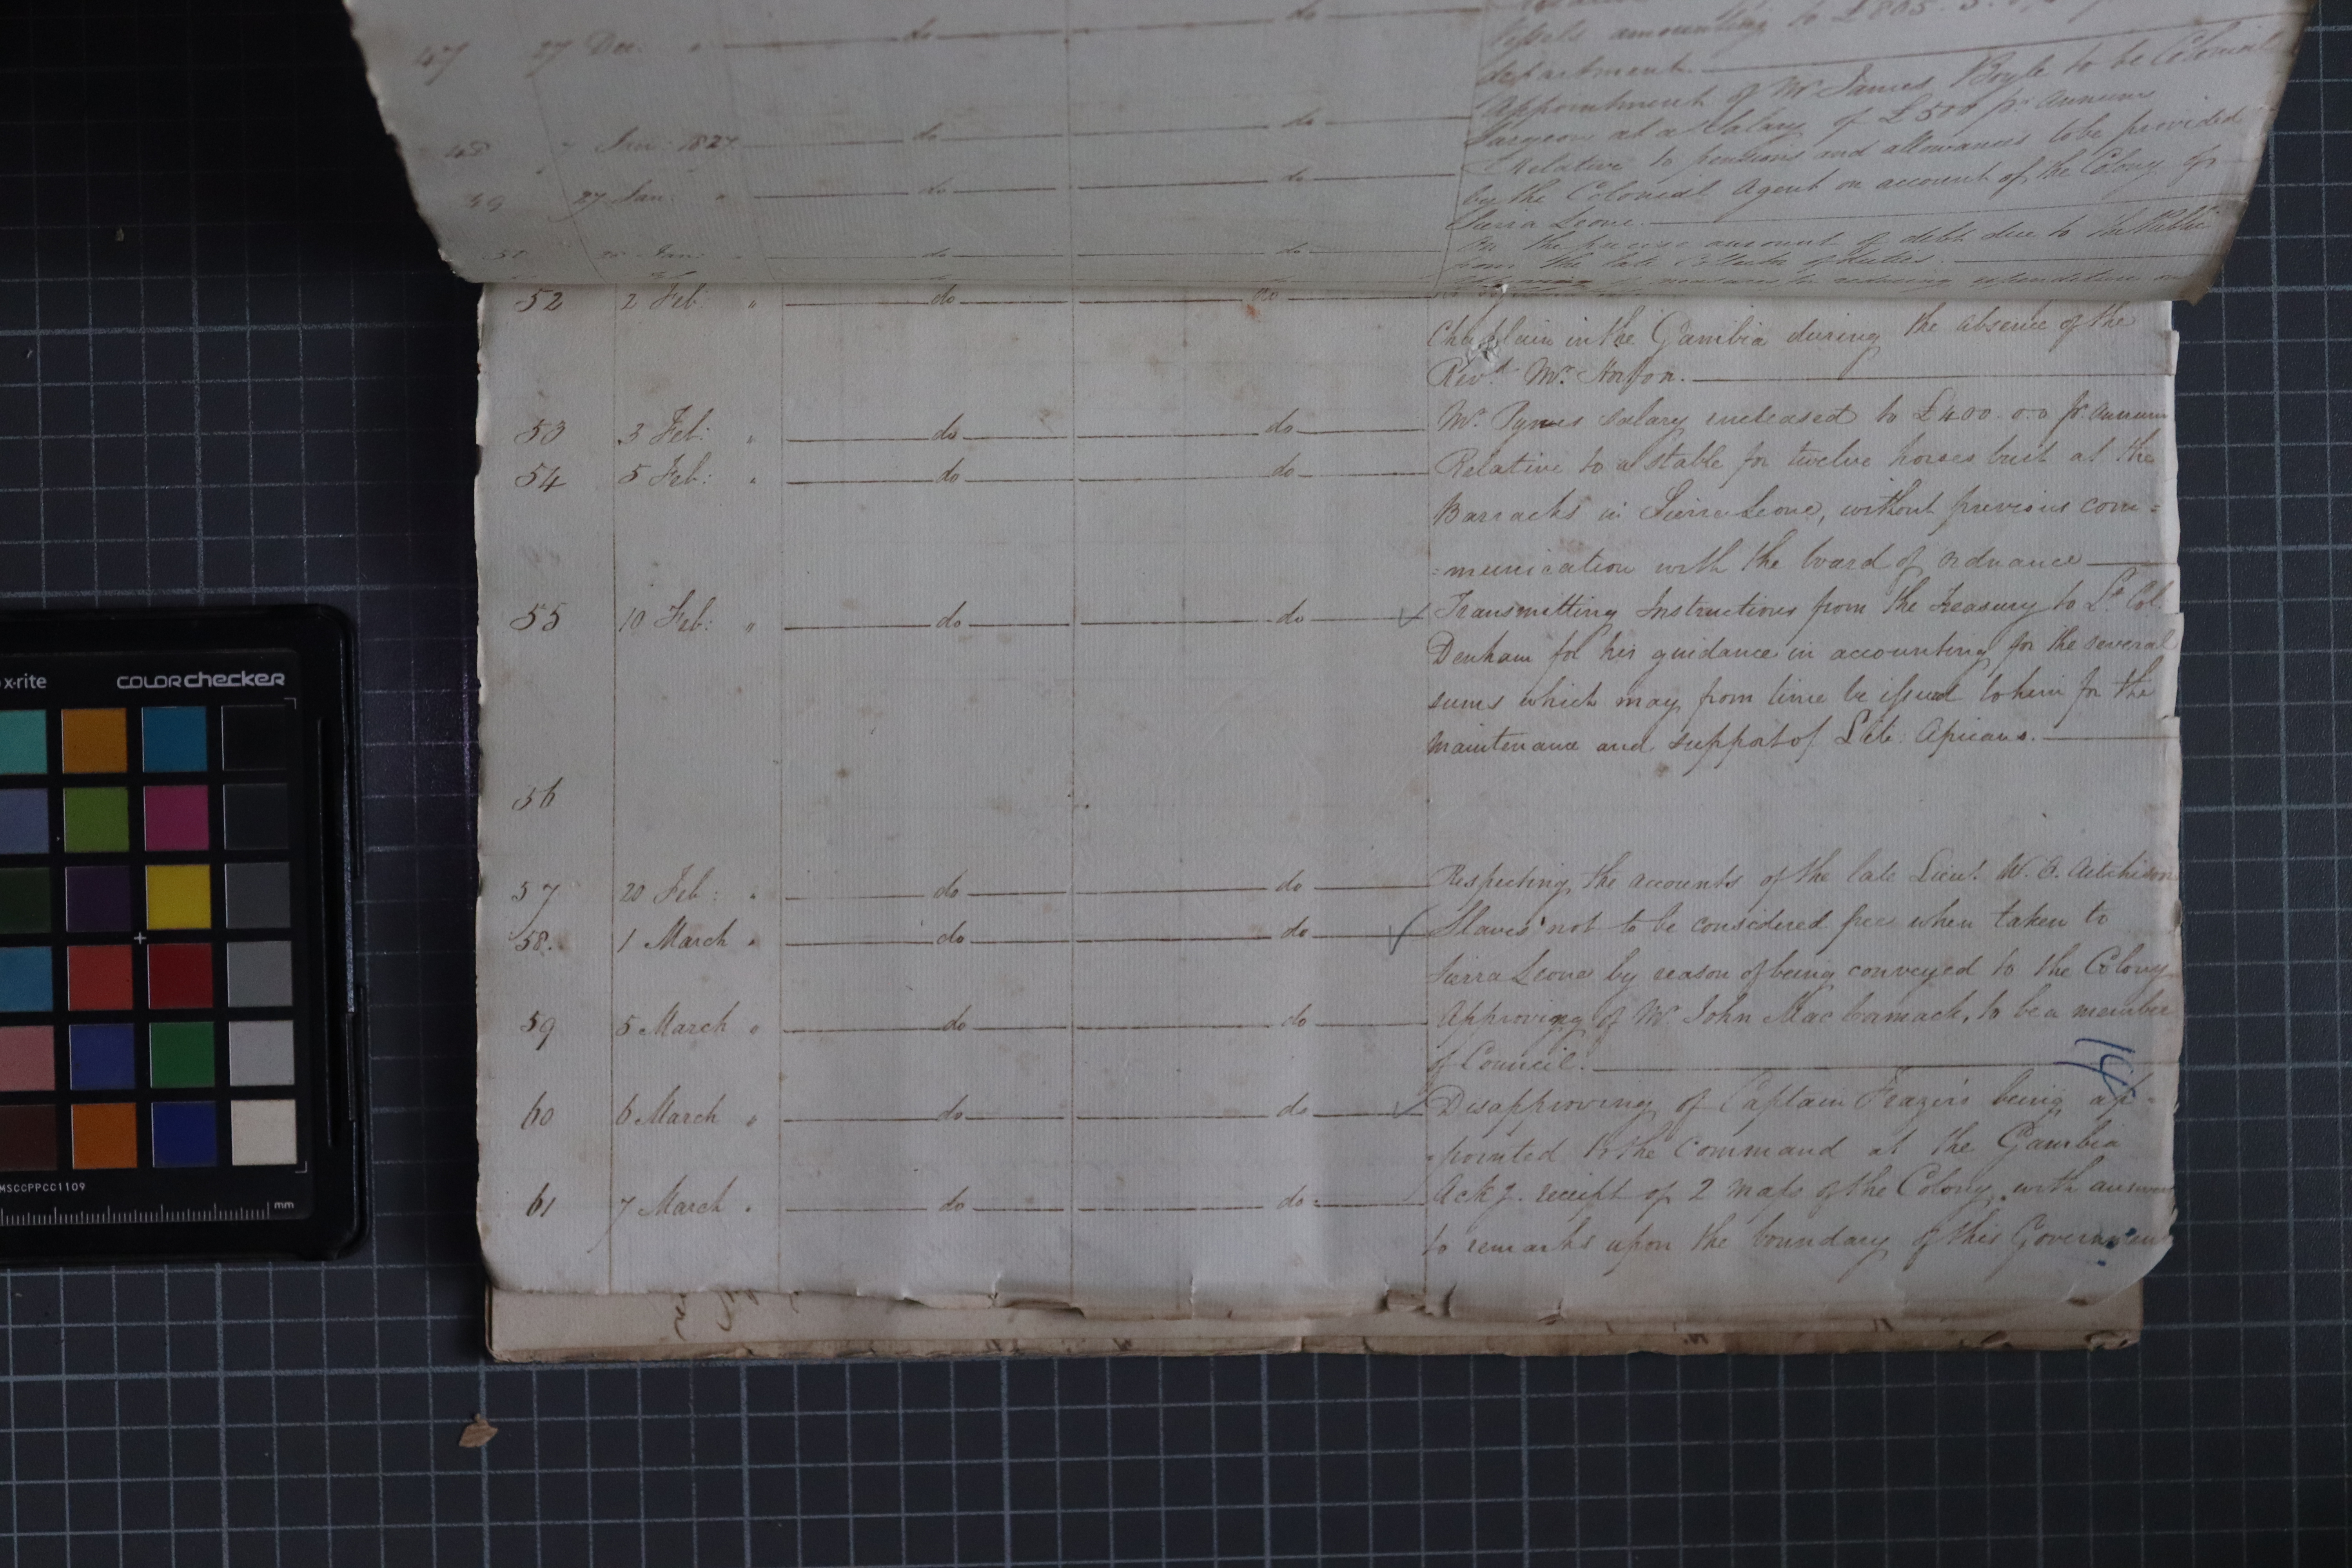 vessels amounting to £805. 3.
47 27 Dec: " do do department.
Appointment of Mr James Boyle to be Colonial
48 7 Jan: 1827 do do Surgeon at a Salary of £500 pr. Annum
49 27 Jan: " do do Relative to pensions and allowances to be provided
by the Colonial Agent on account of the Colony of
Sierra Leone.
50 Jan: do do the precise amount of debt due to the Public
from the late Collector of Duties.
measures for reducing expenditure
52 2 Feb: " do do
Chaplain in the Gambia during the absence of the
Revd. Mr.
53 3 Feb: " do do Mr. Pynes Salary increased to £400.0.0 pr. Annum
54 5 Feb: " do do Relative to a stable for twelve horses buit at the
Barracks in Sierra Leone, without previous com=
=munication with the board of ordnance
55 10 Feb: " do do ✓ Transmitting Instructions from the Treasury to Lt. Col.
Denham for his guidance in accounting for the several
sums which may from time be issued to him for the
maintenance and support of Lib: Africans.
56
57 20 Feb: " do do Respecting the accounts of the late Lieut. W. A. Aitchison
58. 1 March " do do ✓ Slaves not to be considered free when taken to
Sierra Leone by reason of being conveyed to the Colony
59 5 March " do do Approving of Mr. John Mac Cormack, to be a member
of Council.
14
60 6 March " do do ✓ Disapproving of Captain Frazer's being ap=
=pointed to the Command at the Gambia
61 7 March " do do Ackg. receipt of 2 Maps of the Colony, with answer
to remarks upon the boundary of this Government
x-rite colorchecker
MSCCPPCC1109
mm